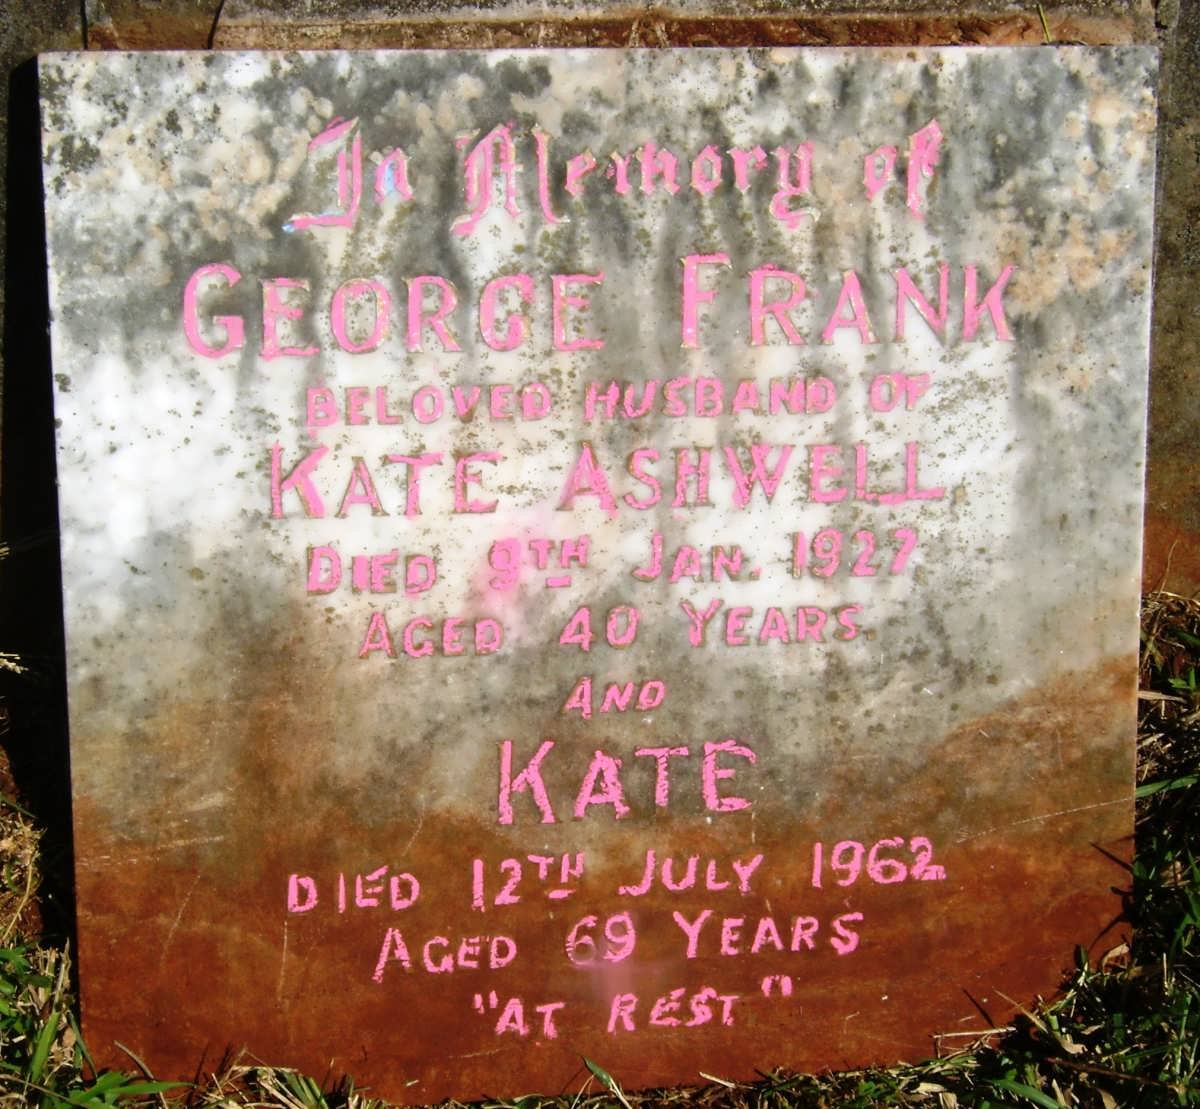 In Memory of
GEORGE FRANK
BELOVED HUSBAND OF
KATE ASHWELL
DIED 9TH JAN. 1927
AGED 40 YEARS.
AND
KATE
DIED 12TH JULY 1962
AGED 69 YEARS
"AT REST"